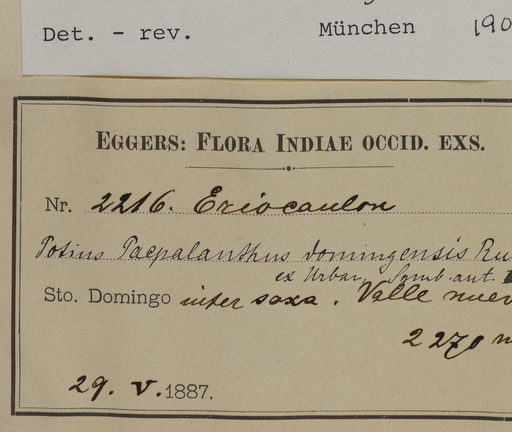 Det. - rev. München 190
EGGERS: FLORA INDIAE OCCID. EXS.
Nr. 2216. Eriocaulon
Potius Paepalanthus domingensis Ru
ex Urban, Symb. ant.
Sto. Domingo inter saxa. Valle nuev
2270 m
29. V. 1887.